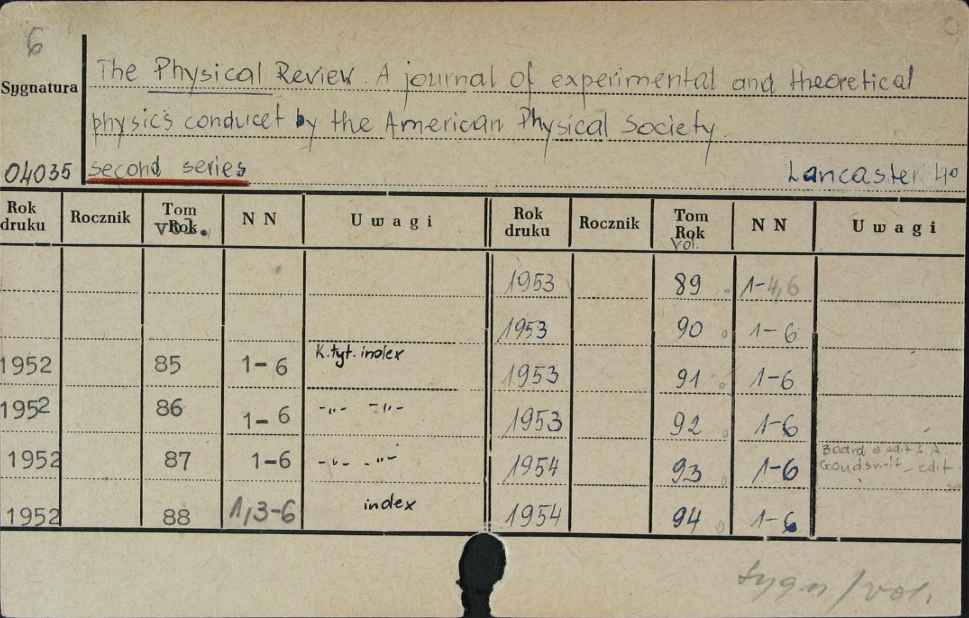 6
Sygnatura The Physical Review. A journal of experimental and theoretical
physics conducet by the American Physical Society
04035 second series Lancaster 4°
Rok druku Rocznik Tom Rok vol. N N Uwagi Rok druku Rocznik Tom Rok Vol. N N Uwagi
1953 89 1-4,6
1953 90 1-6
1952 85 1-6 K.tyt. index 1953 91 1-6
1952 86 1-6 -"- -"- 1953 92 1-6
1952 87 1-6 -"- -"- 1954 93 1-6 Board edit S. A.
Goudsmit edit
1952 88 1,3-6 index 1954 94 1-6
sygn/vol.